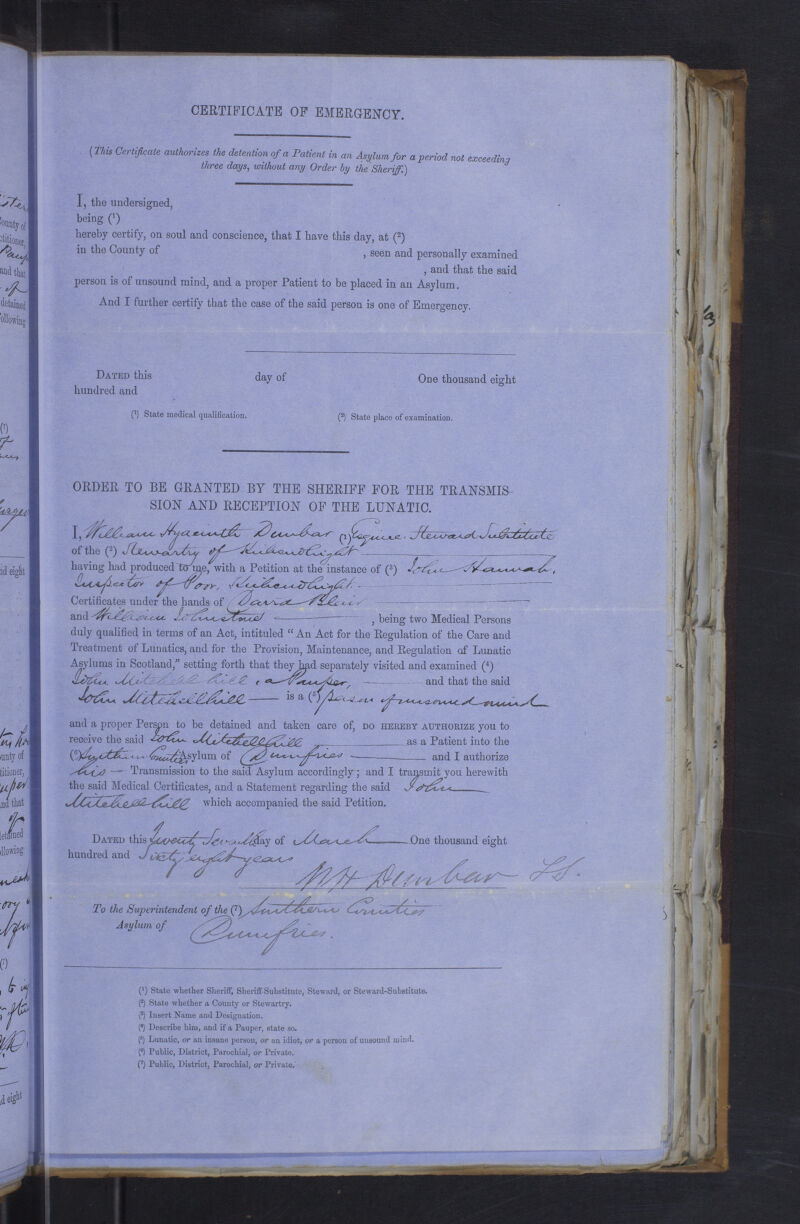 CERTIFICATE OF EMERGENCY.
(This Certificate authorizes the detention of a Patient in an Asylum for a period not exceeding
three days, without any Order by the Sheriff.)
I, the undersigned,
being (1)
hereby certify, on soul and conscience, that I have this day, at (2)
in the County of , seen and personally examined
, and that the said
person is of unsound mind, and a proper Patient to be placed in an Asylum.
And I further certify that the case of the said person is one of Emergency.
DATED this day of One thousand eight
hundred and
(1) State medical qualification. (2) State place of examination.
ORDER TO BE GRANTED BY THE SHERIFF FOR THE TRANSMIS-
SION AND RECEPTION OF THE LUNATIC.
I, William Hyacinth Dunbar (1) Esquire Steward Substitute
of the (2) Stewartry of Kirkcudbright
having had produced to me, with a Petition at the instance of (3) John Hannah,
Inspector of Poor, Kirkcudbright
Certificates under the hands of David Blair
and William Johnstone , being two Medical Persons
duly qualified in terms of an Act, intituled "An Act for the Regulation of the Care and
Treatment of Lunatics, and for the Provision, Maintenance, and Regulation of Lunatic
Asylums in Scotland," setting forth that they had separately visited and examined (4)
John Mitchell hill, a Pauper, and that the said
John Mitchellhill — is a (5) person of unsound mind
and a proper Person to be detained and taken care of, DO HEREBY AUTHORIZE you to
receive the said John Mitchellhill as a Patient into the
(6) Southern Counties Asylum of Dumfries — and I authorize
his — Transmission to the said Asylum accordingly; and I transmit you herewith
the said Medical Certificates, and a Statement regarding the said John
Mitchellhill which accompanied the said Petition.
DATED this twenty seventh day of March — One thousand eight
hundred and Sixty eight years
WH Dunbar SS.
To the Superintendent of the (7) Southern Counties
Asylum of Dumfries.
(1) State whether Sheriff, Sheriff-Substitute, Steward, or Steward-Substitute.
(2) State whether a County or Stewartry.
(3) Insert Name and Designation.
(4) Describe him, and if a Pauper, state so.
(5) Lunatic, or an insane person, or an idiot, or a person of unsound mind.
(6) Public, District, Parochial, or Private.
(7) Public, District, Parochial, or Private.